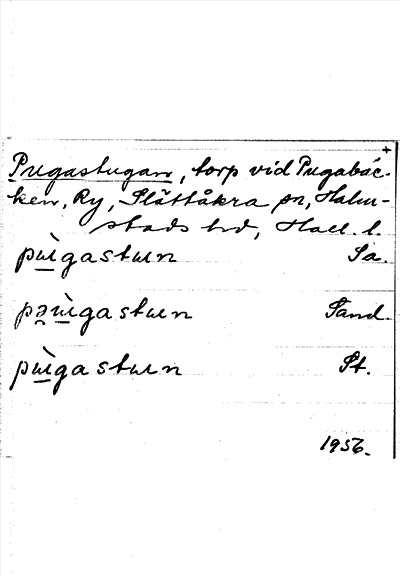 +
Pugastugan, torp vid Pugabäc-
ken, Ry, Slättåkra sn, Halm-
stads hd, Hall. l.
pɯ̀gastɯn Sa.
pəɯ̀gastɯn Sand.
pɯ̀gastɯn St.
1956.